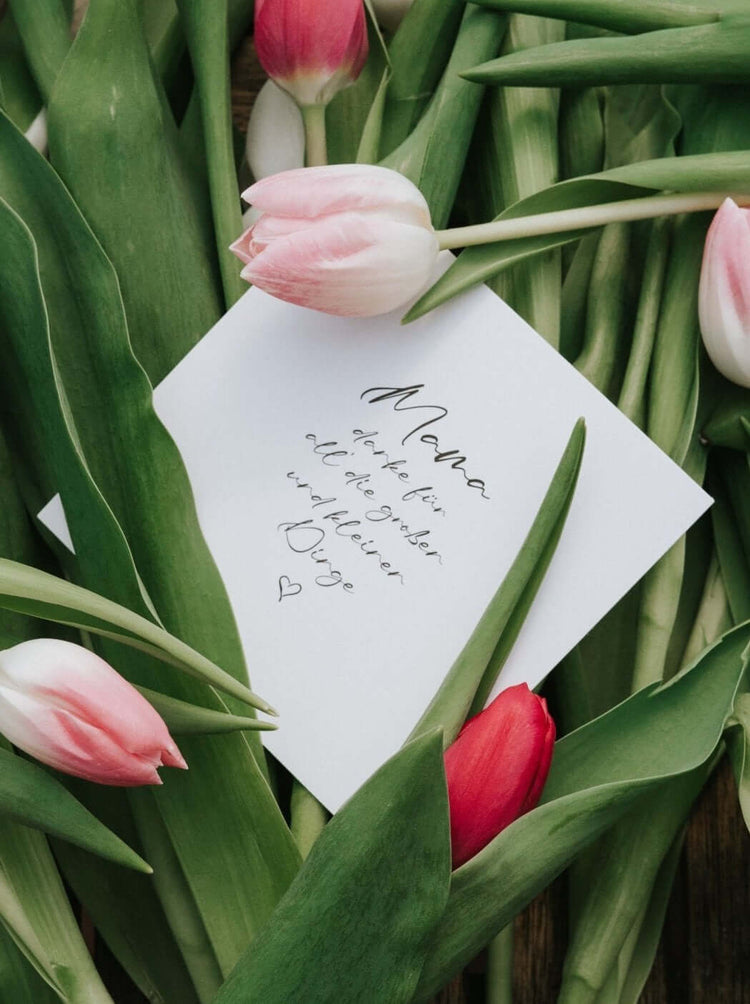 Mama
danke für
all' die großen
und kleinen
Dinge
♡